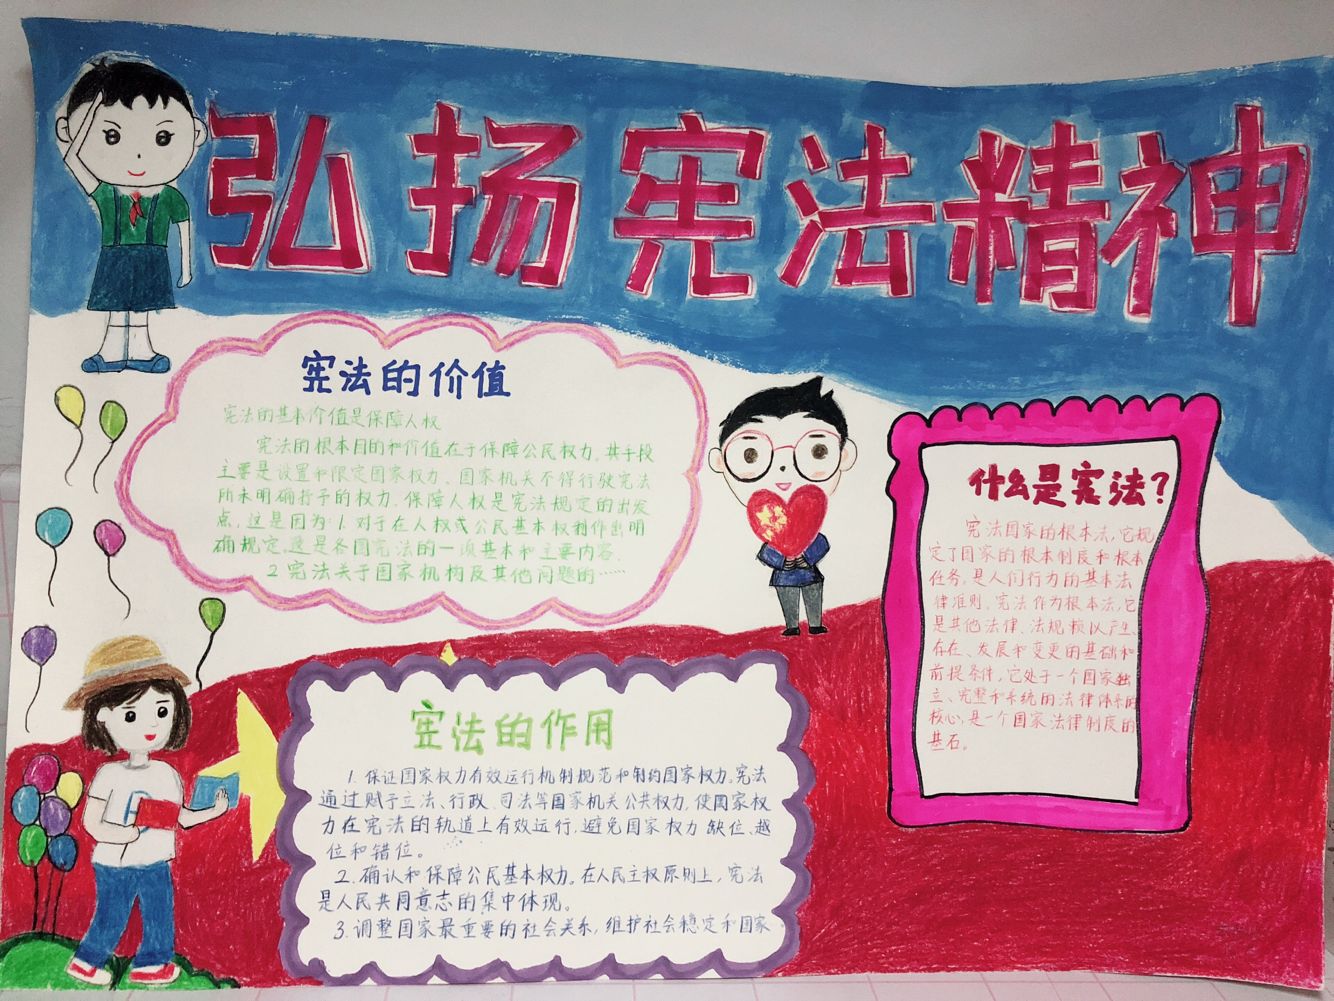 弘扬宪法精神
宪法的价值
宪法的基本价值是保障人权
宪法的根本目的和价值在于保障公民权力。其手段
主要是设置和限定国家权力、国家机关不得行驶宪法
所未明确授予的权力。保障人权是宪法规定的出发
点,这是因为:1.对于在人权或公民基本权利作出明
确规定,这是各国宪法的一项基本和主要内容.
2 宪法关于国家机构及其他问题的……
什么是宪法?
宪法国家的根本法,它规
定了国家的根本制度和根本
任务,是人们行为的基本法
律准则。宪法作为根本法,它
是其他法律、法规赖以产生、
存在、发展和变更的基础和
前提条件,它处于一个国家独
立、完整和系统的法律体系的
核心,是一个国家法律制度的
基石。
宪法的作用
1.保证国家权力有效运行机制规范和制约国家权力。宪法
通过赋予立法、行政、司法等国家机关公共权力,使国家权
力在宪法的轨道上有效运行,避免国家权力缺位、越
位和错位。
2.确认和保障公民基本权力。在人民主权原则上,宪法
是人民共同意志的集中体现。
3.调整国家最重要的社会关系,维护社会稳定和国家